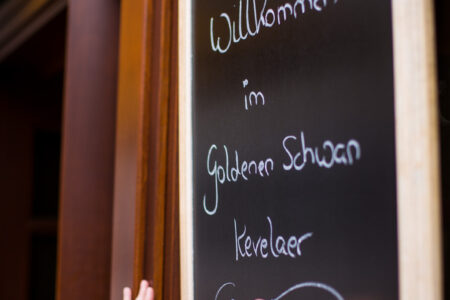 Willkommen
im
Goldenen Schwan
Kevelaer